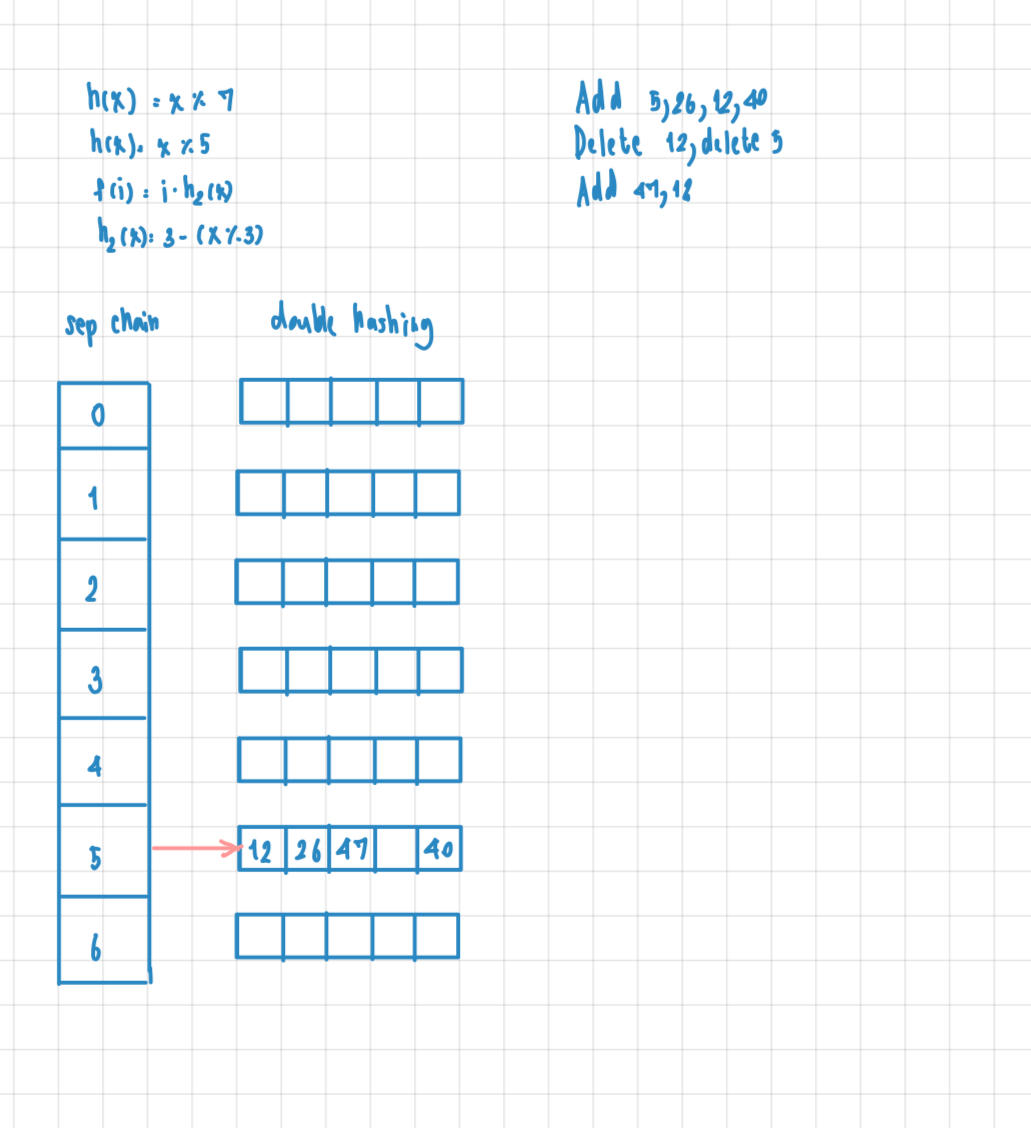 h(x) = x % 7
h(x) = x % 5
f(i) = i · h₂(x)
h₂(x) = 3 - (x % 3)
Add 5, 26, 12, 40
Delete 12, delete 5
Add 47, 12
sep chain
double hashing
0
1
2
3
4
5
12 26 47 40
6